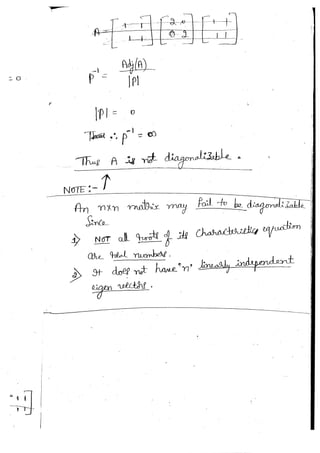 A = [1 1 1 1] [2 0 0 2] [1 1 1 1]
p⁻¹ = Adj(A) / |P|
= 0
|P| = 0
∴ p⁻¹ = ∞
Thus A is not diagonalizable.
NOTE :-
An nxn matrix may fail to be diagonalizable
Since
1) NOT all roots of its characteristic equation
are real numbers.
2) It does not have "n" linearly independent
eigen vectors.